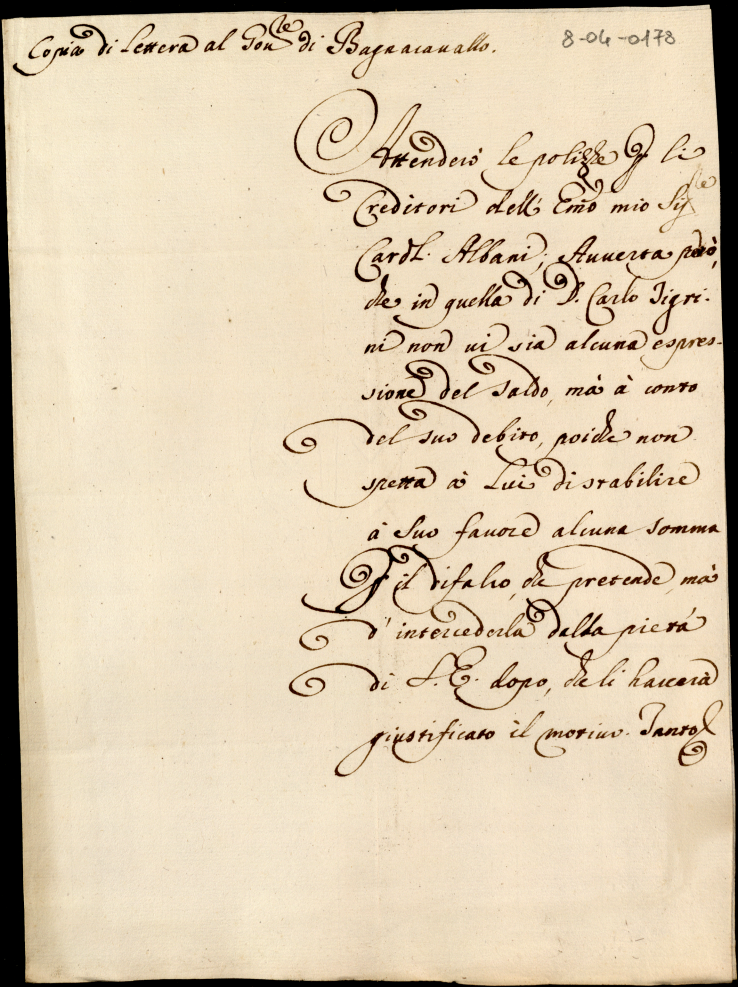 Copia di Lettera al Gou.re di Bagnacauallo.
8-04-0178
Attenderò le polizze p li
Creditori dell' Emo mio Sig.re
Cardl. Albani; Auuerta però,
che in quella di D. Carlo Tigri-
ni non ui sia alcuna espres-
sione del saldo, mà à conto
del suo debito, poiche non
spetta à Lui di stabilire
à suo fauore alcuna somma
p il difalco, che pretende, mà
d' intercederla dalla pietà
di S. E. dopo, che li hauerà
giustificato il motiuo. Tanto